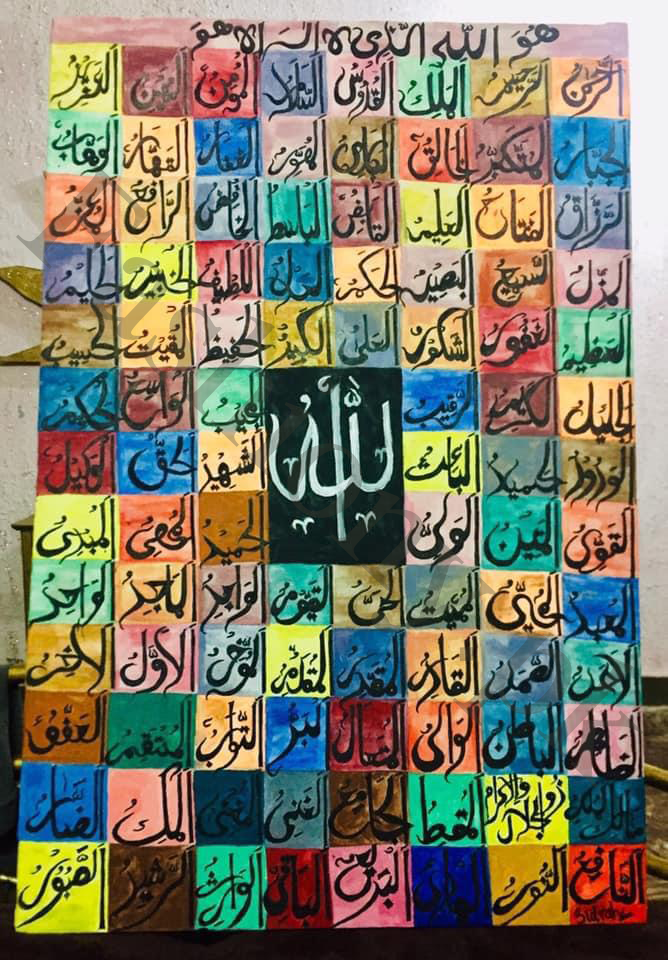 هو الله الذى لا اله الا هو
الرحمن الرحيم الملك القدوس السلام المؤمن المهيمن العزيز
الجبار المتكبر الخالق البارئ المصور الغفار القهار الوهاب
الرزاق الفتاح العليم القابض الباسط الخافض الرافع المعز
المذل السميع البصير الحكم العدل اللطيف الخبير الحليم
العظيم الغفور الشكور العلى الكبير الحفيظ المقيت الحسيب
الجليل الكريم الرقيب المجيب الواسع الحكيم
الله
الودود الحميد الباعث الشهيد الحق الوكيل
القوى المتين الولى الحميد المحصى المبدئ
المعيد المحيى المميت الحى القيوم الواجد الماجد الواحد
الاحد الصمد القادر المقتدر المقدم المؤخر الاول الاخر
الظاهر الباطن الوالى المتعال البر التواب المنتقم العفو
مالك الملك ذوالجلال والاكرام المقسط الجامع الغنى المغنى الضار
النافع النور الهادى البديع الباقى الوارث الرشيد الصبور